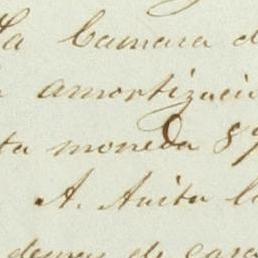 La Camara d
amortizacio
ta moneda 89
A. Anita l
demas de cara